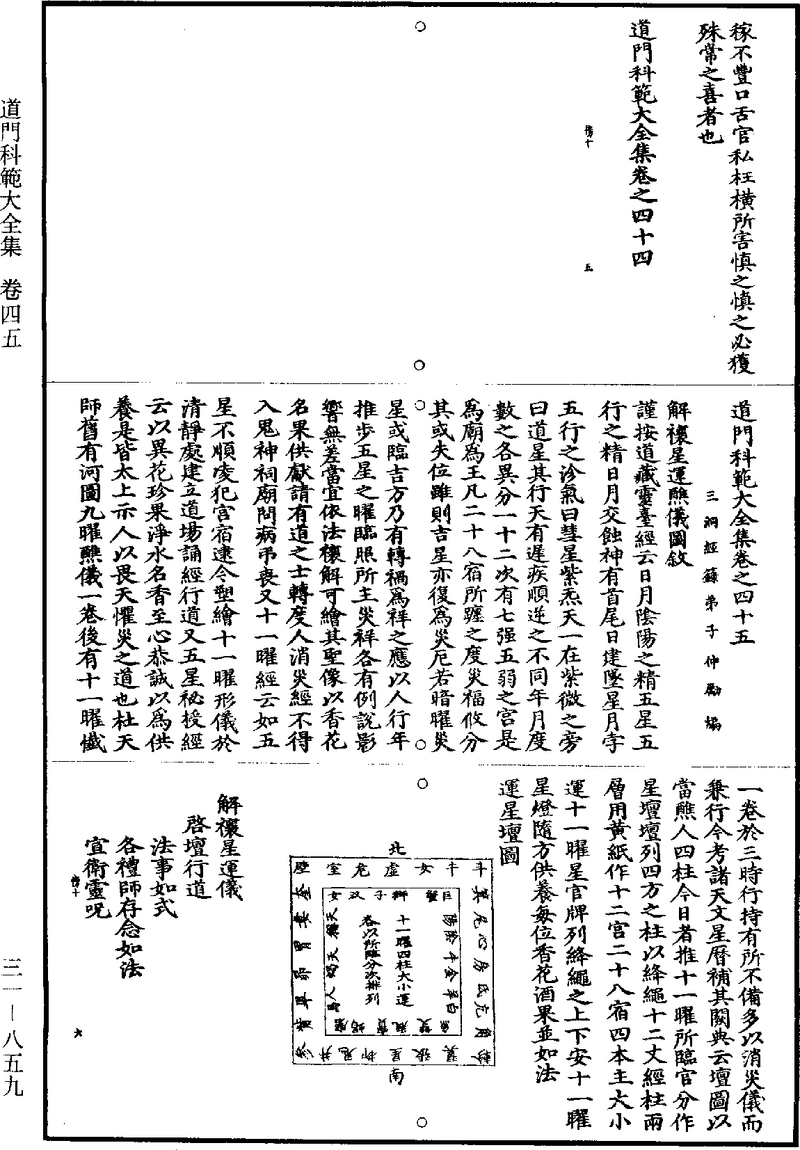 稼不豐口舌官私枉橫所害慎之慎之必獲
殊常之喜者也
道門科範大全集卷之四十四
五
道門科範大全集卷之四十五
三洞經籙弟子仲勵編
解禳星運醮儀圖敘
謹按道藏靈臺經云日月陰陽之精五星五
行之精日月交蝕神有首尾日建墜星月孛
五行之沴氣曰彗星紫炁天一在紫微之旁
曰道星其行天有遲疾順逆之不同年月度
數之各異分一十二次有七强五弱之宮是
為廟為王凡二十八宿所躔之度災福攸分
其或失位雖則吉星亦復為災厄若暗曜災
星或臨吉方乃有轉禍為祥之應以人行年
推步五星之曜臨照所主災祥各有例說影
響無差當宜依法禳解可繪其聖像以香花
名果供獻請有道之士轉度人消災經不得
入鬼神祠廟問病弔喪又十一曜經云如五
星不順凌犯宮宿建令塑繪十一曜形儀於
清靜處建立道場誦經行道又五星祕授經
云以異花珍果淨水名香至心恭誠以為供
養是皆太上示人以畏天懼災之道也杜天
師舊有河圖九曜醮儀一卷後有十一曜懺
一卷於三時行持有所不備多以消災儀而
兼行今考諸天文星曆補其闕典云壇圖以
當醮人四柱令日者推十一曜所臨官分作
星壇壇列四方之柱以絳繩十二丈經柱兩
層用黃紙作十二宮二十八宿四本主大小
運十一曜星官牌列絳繩之上下安十一曜
星燈隨方供養每位香花酒果並如法
運星壇圖
北
斗牛女虛危室壁
奎婁胃昴畢觜參
井鬼柳星張翼軫
角亢氐房心尾箕
十一曜四柱大小運
各以所躔分次排列
南
解禳星運儀
啓壇行道
法事如式
各禮師存念如法
宣衛靈呪
六
道門科範大全集 卷四五
三一—八五九